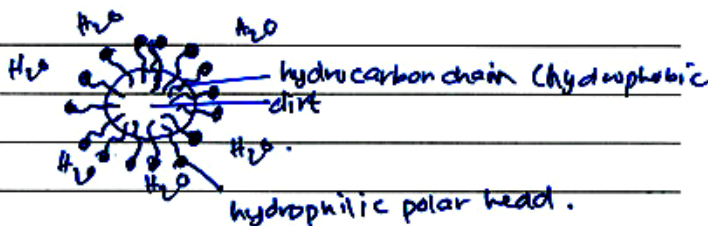 H₂O H₂O
H₂O hydrocarbon chain (hydrophobic
dirt
H₂O.
H₂O H₂O
hydrophilic polar head.